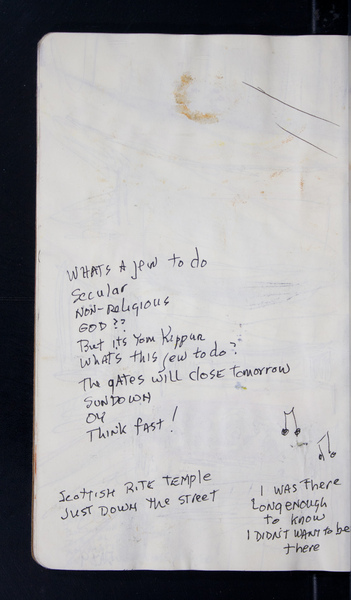 WHATS A JEW to do
Secular
NON-Religious
GOD ??
But its Yom Kippur
Whats this Jew to do?
The gates will close tomorrow
SUNDOWN
OY
Think fast!
Scottish Rite Temple
Just Down the street
I was there
Long enough
to know
I DIDN'T WANT to be
there